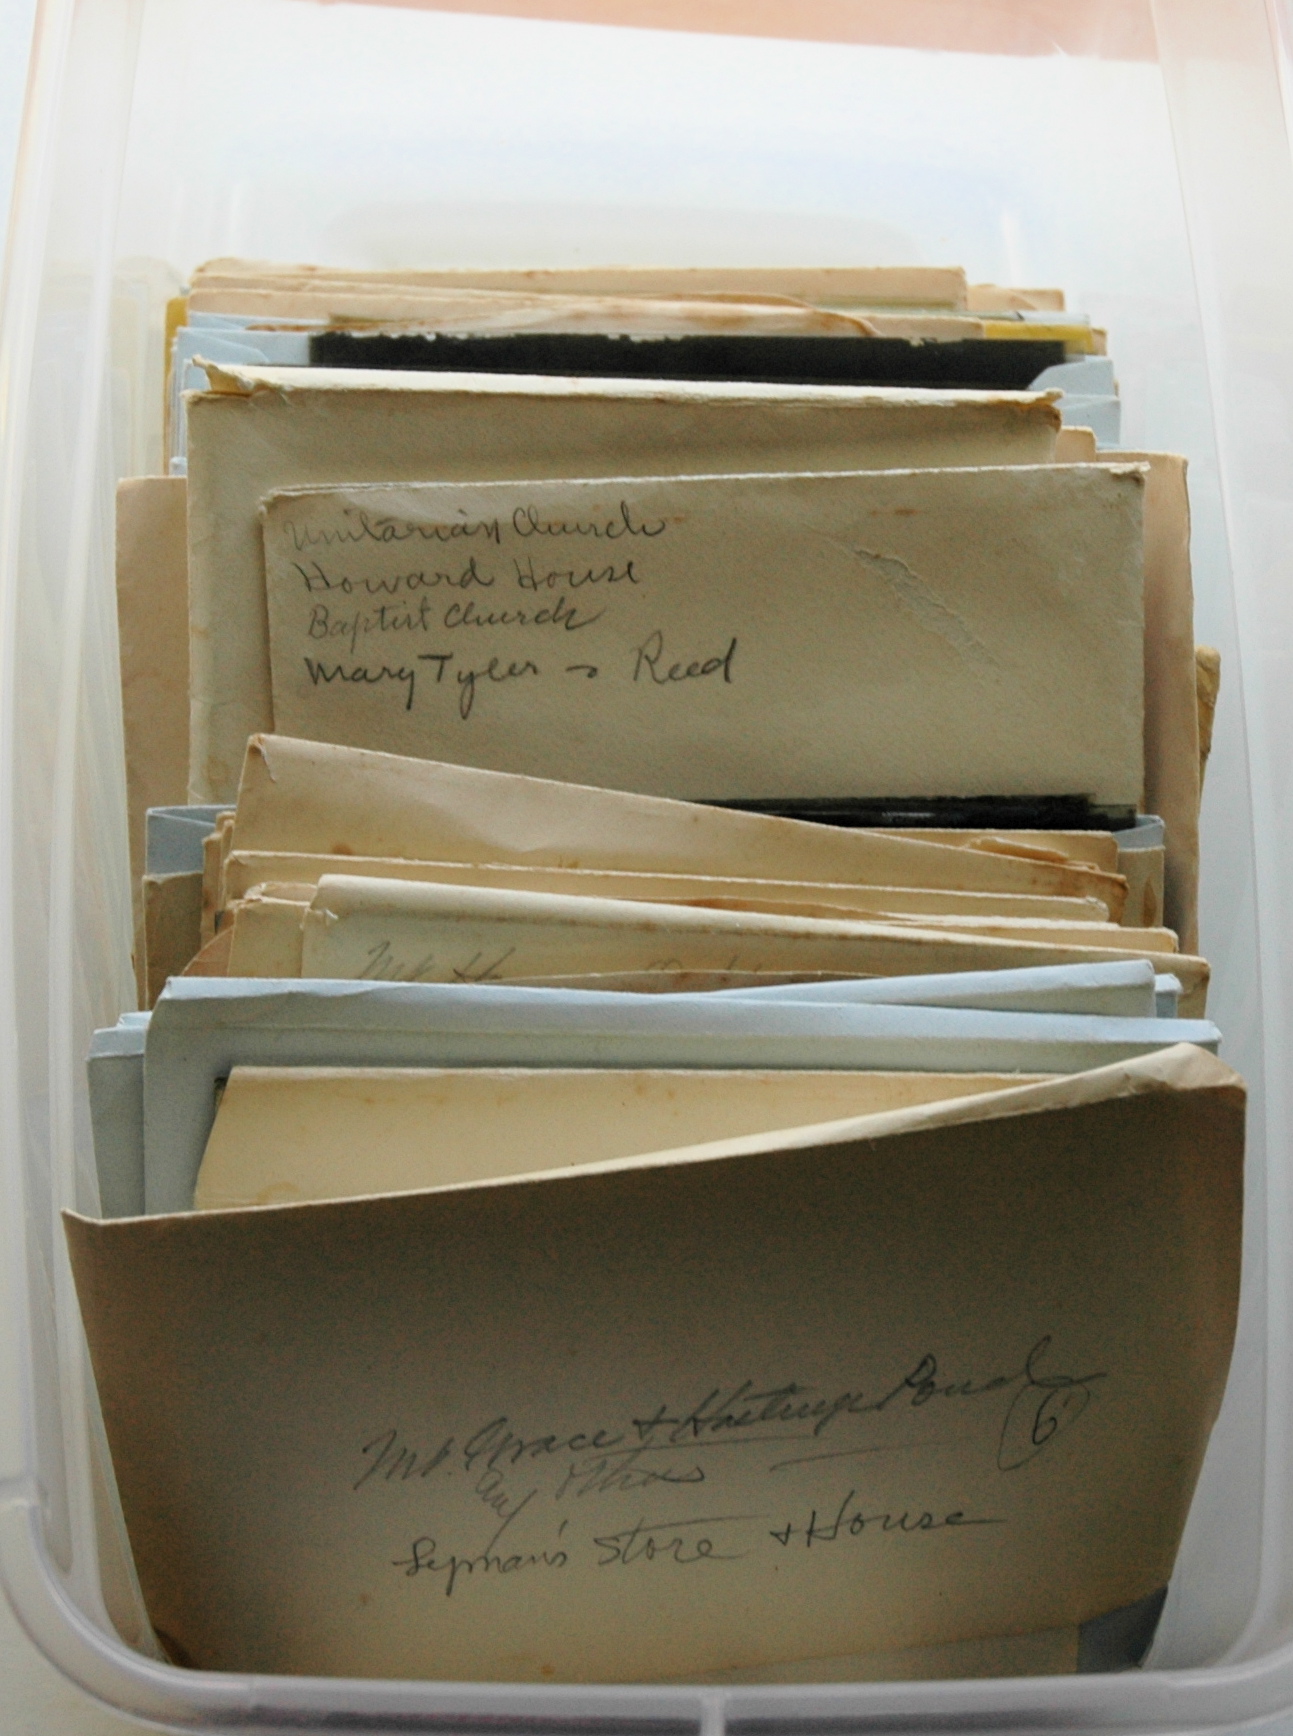 Unitarian Church
Howard House
Baptist Church
Mary Tyler Reed
Mt. H
Mt. Grace & Hastings Pond
6
Lyman's Store & House